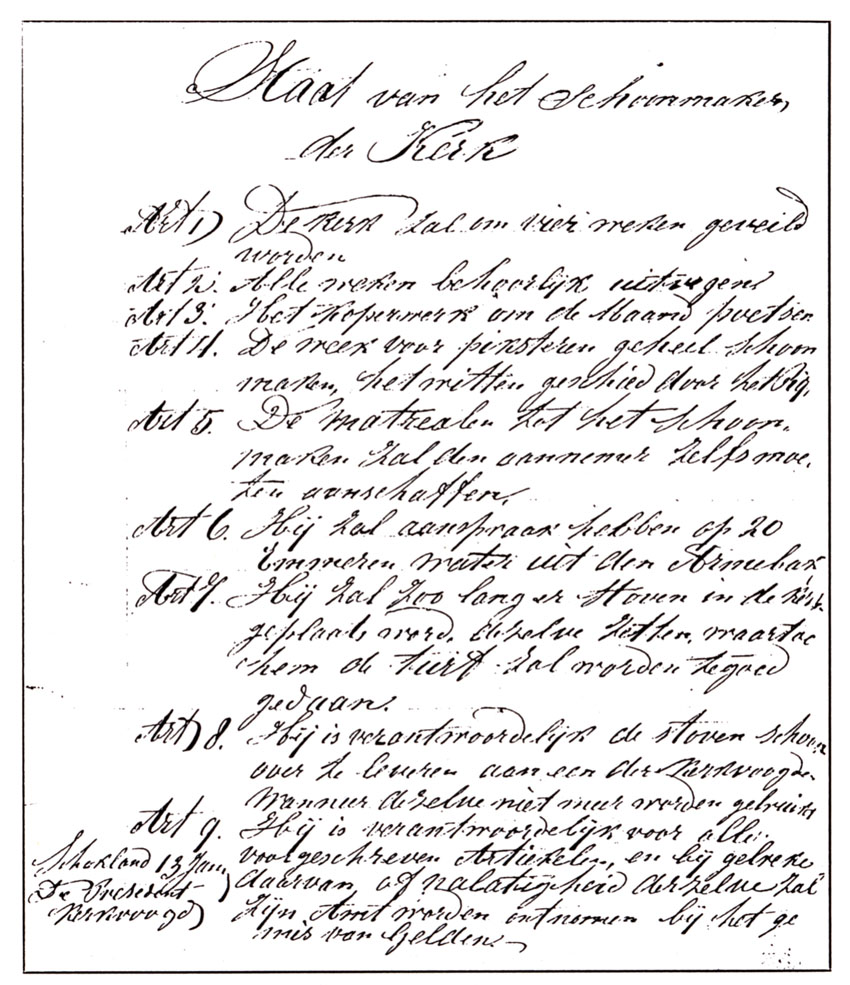 Staat van het Schoonmaken,
der Kerk
Art 1) De Kerk zal om vier weken geveild
worden
Art 2. Alle weken behoorlijk uitvegen
Art 3. Het koperwerk om de Maand poetsen
Art 4. De week voor pinksteren geheel schoon
maken, het witten geschied door het
Art 5. De matrealen tot het schoon,
maken zal den aannemer zelfs moe,
ten aanschaffen,
Art 6. Hij zal aanspraak hebben op 20
Emmeren water uit den Armebak
Art 7. Hij zal zoo lang er stoven in de kerk
geplaats word, dezelve zetten, waartoe
hem de turf zal worden tegoed
gedaan.
Art) 8. Hij is verantwoordelijk de stoven schoon
over te leveren aan een der Kerkvoogden
wanneer dezelve niet meer worden gebruikt
Art 9. Hij is verantwoordelijk voor alle
voorgeschreven Artiekelen, en bij gebreke
daarvan, of nalatigheid derzelve zal
zijn Amt worden ontnomen bij het ge
mis van Gelden.
Schokland 13 Jan
De President
Kerkvoogd